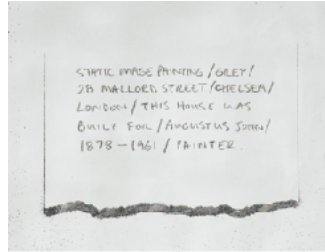 STATIC IMAGE PAINTING / GREY /
28 MALLORD STREET / CHELSEA /
LONDON / THIS HOUSE WAS
BUILT FOR / AUGUSTUS JOHN /
1878 – 1961 / PAINTER.